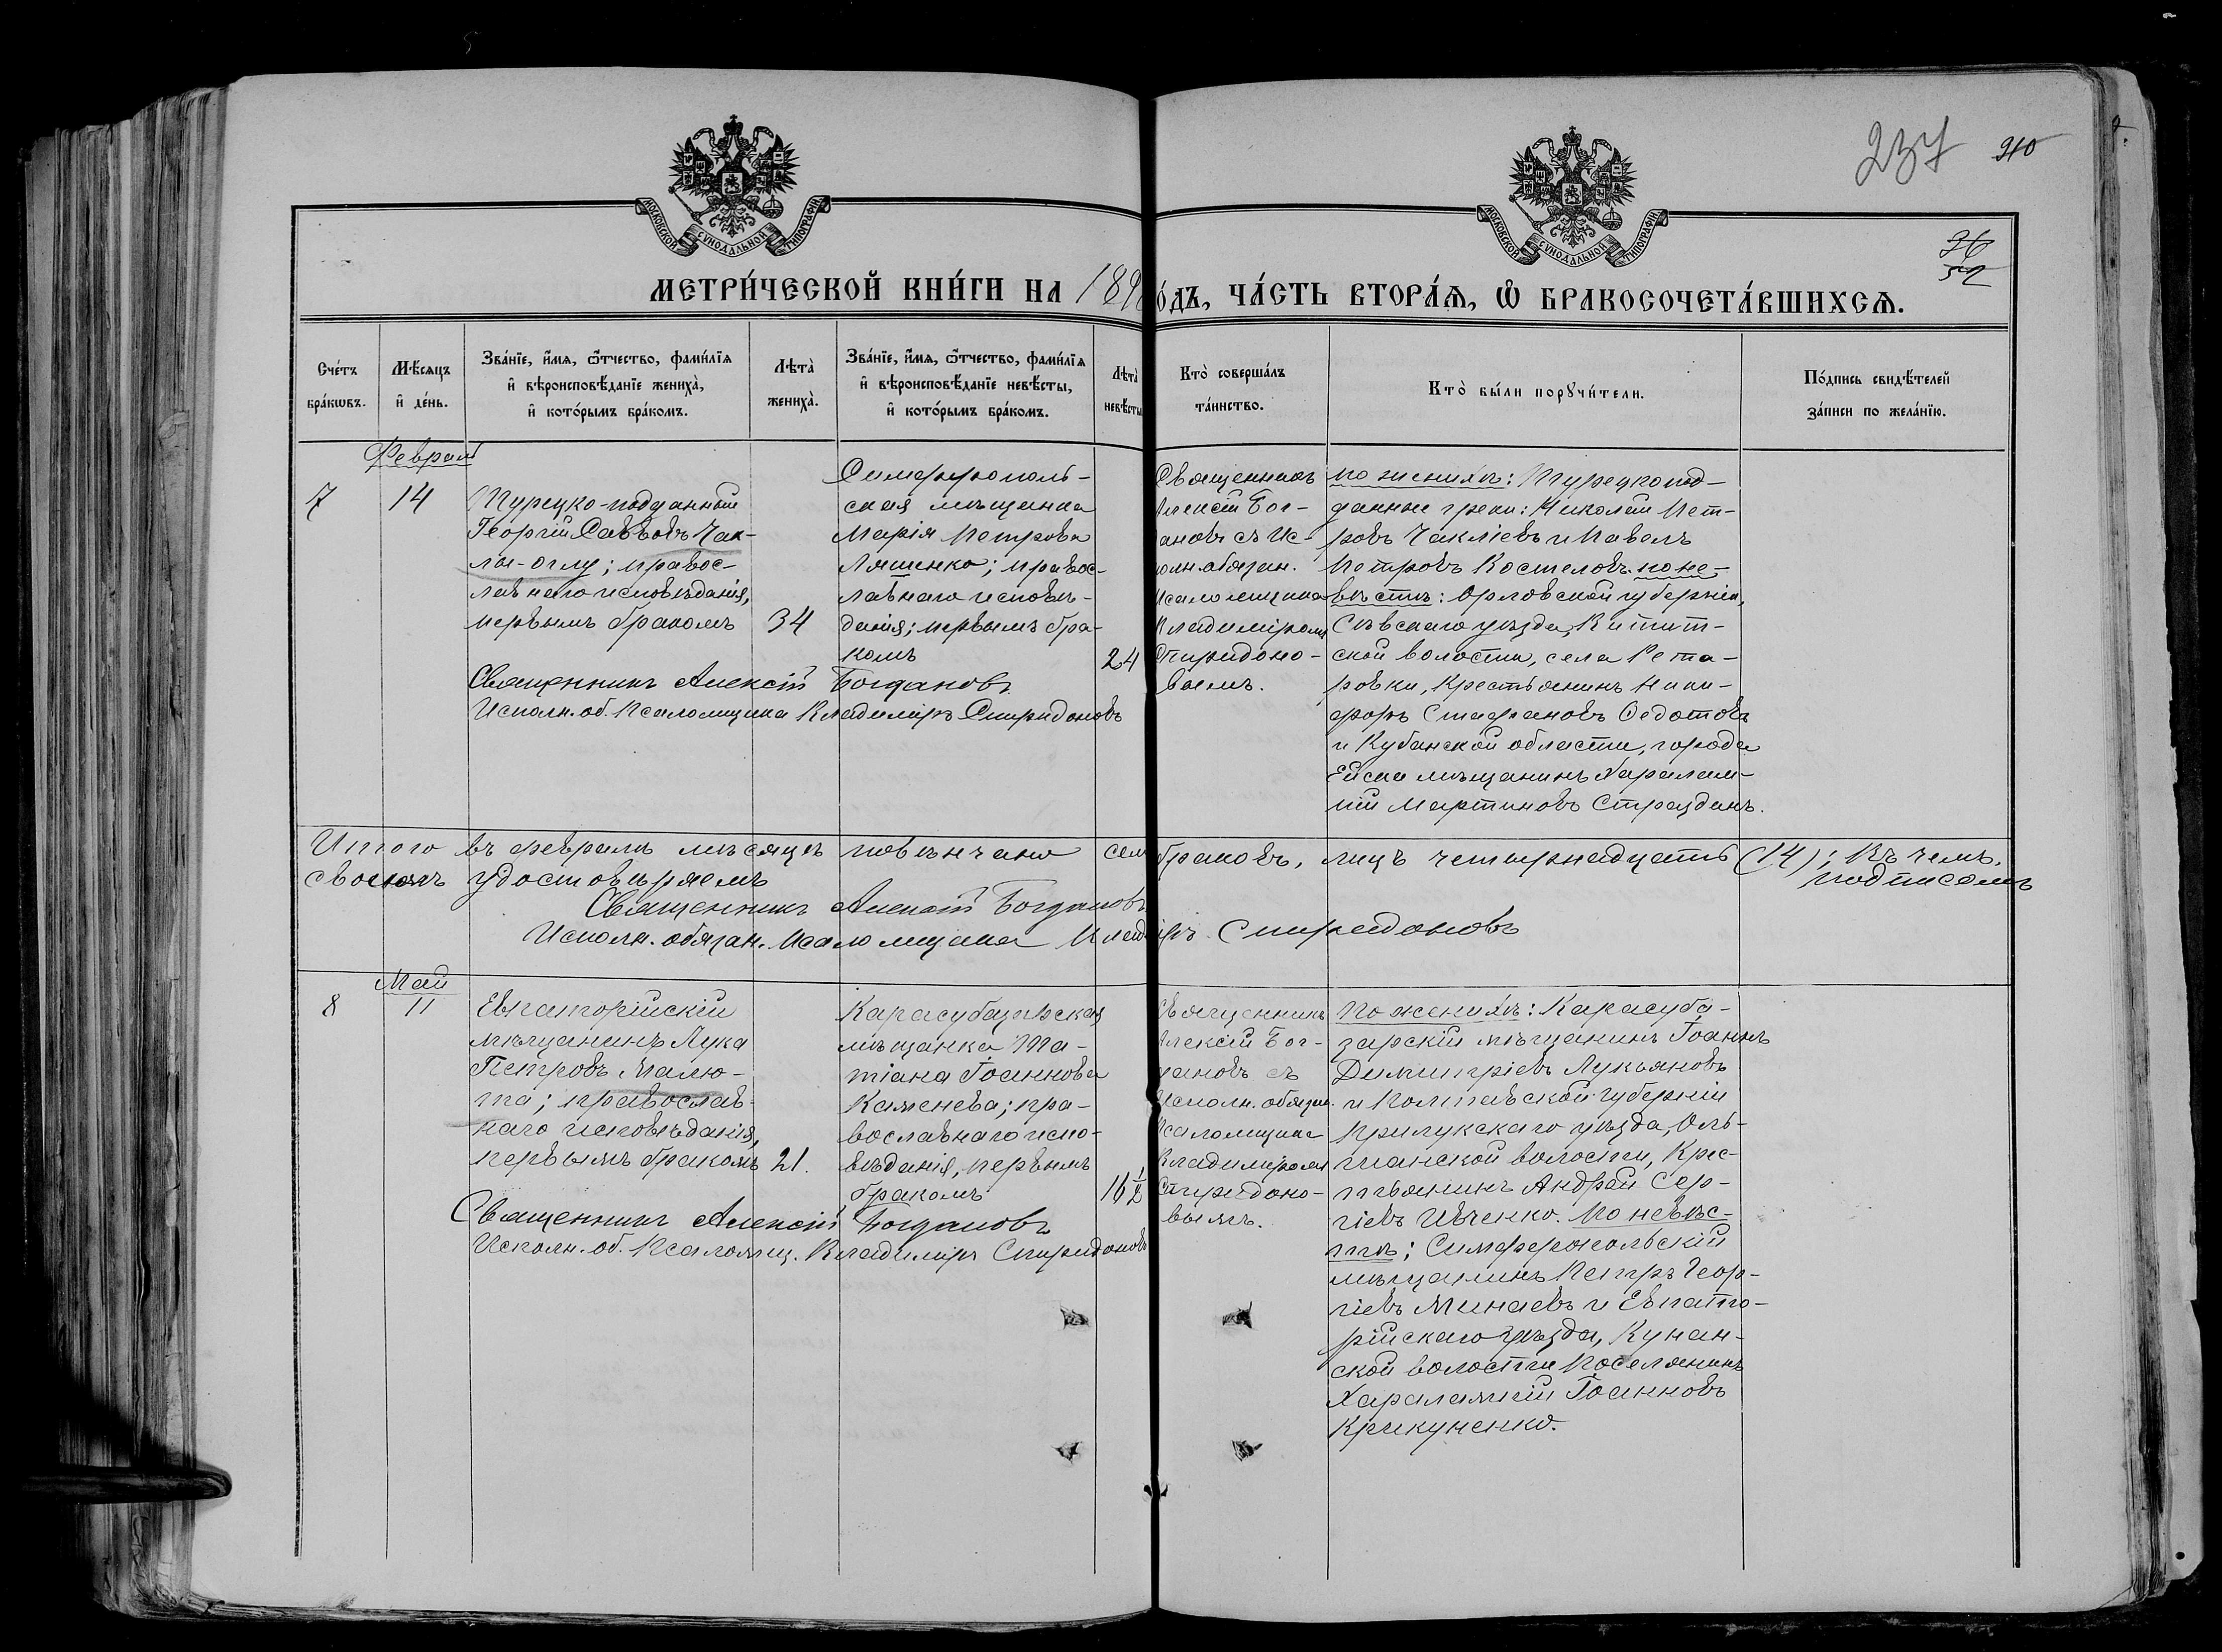 237 910
36
52
МОСКОВСКОЙ СУНОДАЛЬНОЙ ТИПОГРАФІИ
МОСКОВСКОЙ СУНОДАЛЬНОЙ ТИПОГРАФІИ
МЕТРИ́ЧЕСКОЙ КНИ́ГИ НА 189
О́ДЪ, ЧА́СТЬ ВТОРА́Ѧ, Ѽ БРАКОСОЧЕТА́ВШИХСѦ.
Сче́тъ
бра́кѡвъ.
Мѣ́сѧцъ
и҆ де́нь.
Зва́нїе, и҆́мѧ, ѻ҆́тчество, фами́лїѧ
и҆ вѣроисповѣ́данїе жениха̀,
и҆ кото́рымъ бра́комъ.
Лѣта̀
жениха̀.
Зва́нїе, и҆́мѧ, ѻ҆́тчество, фами́лїѧ
и҆ вѣроисповѣ́данїе невѣ́сты,
и҆ кото́рымъ бра́комъ.
Лѣта̀
невѣ́сты
Кто̀ соверша́лъ
та́инство.
Кто̀ бы́ли порꙋчи́тели.
По́дпись свидѣ́телей
за́писи по жела́нїю.
Феврал
7
14
Турецко-подданный
Георгій Саввовъ Чак-
лы-оглу; правос-
лавнаго исповѣданія,
первымъ бракомъ
34
Симферополь-
ская мѣщанка
Марія Петрова
Ляшенко; правос-
лавнаго исповѣ-
данія; первымъ бра-
комъ
24
Священникъ
Алексій Бог-
ановъ съ Ис-
полн. обязан.
Псаломщика
Владиміромъ
Спиридоно-
вымъ.
по женихѣ: Турецкопод-
данные греки: Николай Пет-
ровъ Чакліевъ и Павелъ
Петровъ Костеловъ. по не-
вѣстѣ: Орловской губерніи,
Сѣвскаго уѣзда,
ской волости, села
ровки, Крестьянинъ Ники-
форъ Стефановъ Федотовъ
и Кубанской области, города
Ейска мѣщанинъ Харалам-
пій Мартиновъ
Священникъ Алексій Богдановъ
Исполн. об. Псаломщика Владиміръ Спиридоновъ
Итого въ февралѣ мѣсяцѣ повѣнчано сем браковъ, лицъ четырнадцать (14); въ чемъ
подписомъ
своимъ удостовѣряемъ
Священникъ Алексій Богдановъ
Исполн. обязан. Псаломщика Влад іръ Спиридоновъ
Май
8
11
Евпаторійскій
мѣщанинъ Лука
Петровъ Малю-
та; православ-
наго исповѣданія,
первымъ бракомъ
21.
Карасубазарская
мѣщанка Та-
тіана Іоаннова
Каменева; пра-
вославнаго испо-
вѣданія, первымъ
бракомъ
16 1/2
Священникъ
Алексій Бог-
дановъ съ
Исполн. обязан.
Псаломщика
Владиміромъ
Спиридоно-
вымъ.
По женихѣ: Карасуба-
зарскій мѣщанинъ Іоаннъ
Димитріевъ Лукьяновъ
и Полтавской губерніи
Прилукскаго уѣзда, Оль-
шанской волости, Крес-
тьянинъ Андрей Сер-
гіевъ Ивченко. По невѣс-
тѣ; Симферопольскій
мѣщанинъ Петръ Геор-
гіевъ Минаевъ и Евпато-
рійскаго уѣзда, Кунан-
ской волости Поселянинъ
Харалампій Іоанновъ
Крикуненко.
Священникъ Алексій Богдановъ
Исполн. об. Псаломщ. Владиміръ Спиридоновъ